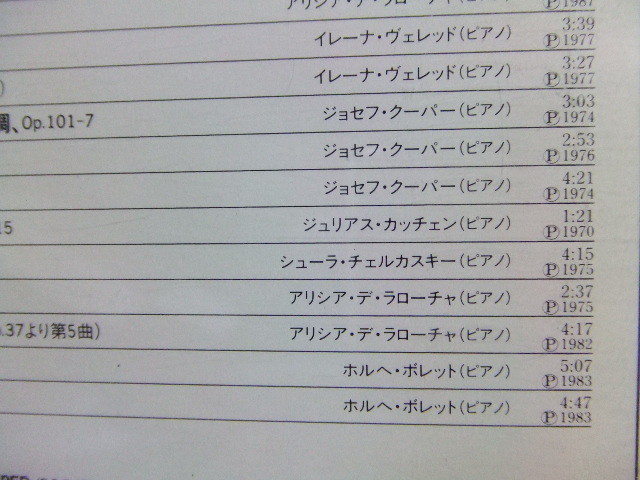 アリシア・デ・ラローチャ(ピアノ) Ⓟ1987
イレーナ・ヴェレッド(ピアノ) 3:39
Ⓟ1977
イレーナ・ヴェレッド(ピアノ) 3:27
Ⓟ1977
調、Op.101-7 ジョセフ・クーパー(ピアノ) 3:03
Ⓟ1974
ジョセフ・クーパー(ピアノ) 2:53
Ⓟ1976
ジョセフ・クーパー(ピアノ) 4:21
Ⓟ1974
15 ジュリアス・カッチェン(ピアノ) 1:21
Ⓟ1970
シューラ・チェルカスキー(ピアノ) 4:15
Ⓟ1975
アリシア・デ・ラローチャ(ピアノ) 2:37
Ⓟ1975
.37より第5曲) アリシア・デ・ラローチャ(ピアノ) 4:17
Ⓟ1982
ホルヘ・ボレット(ピアノ) 5:07
Ⓟ1983
ホルヘ・ボレット(ピアノ) 4:47
Ⓟ1983